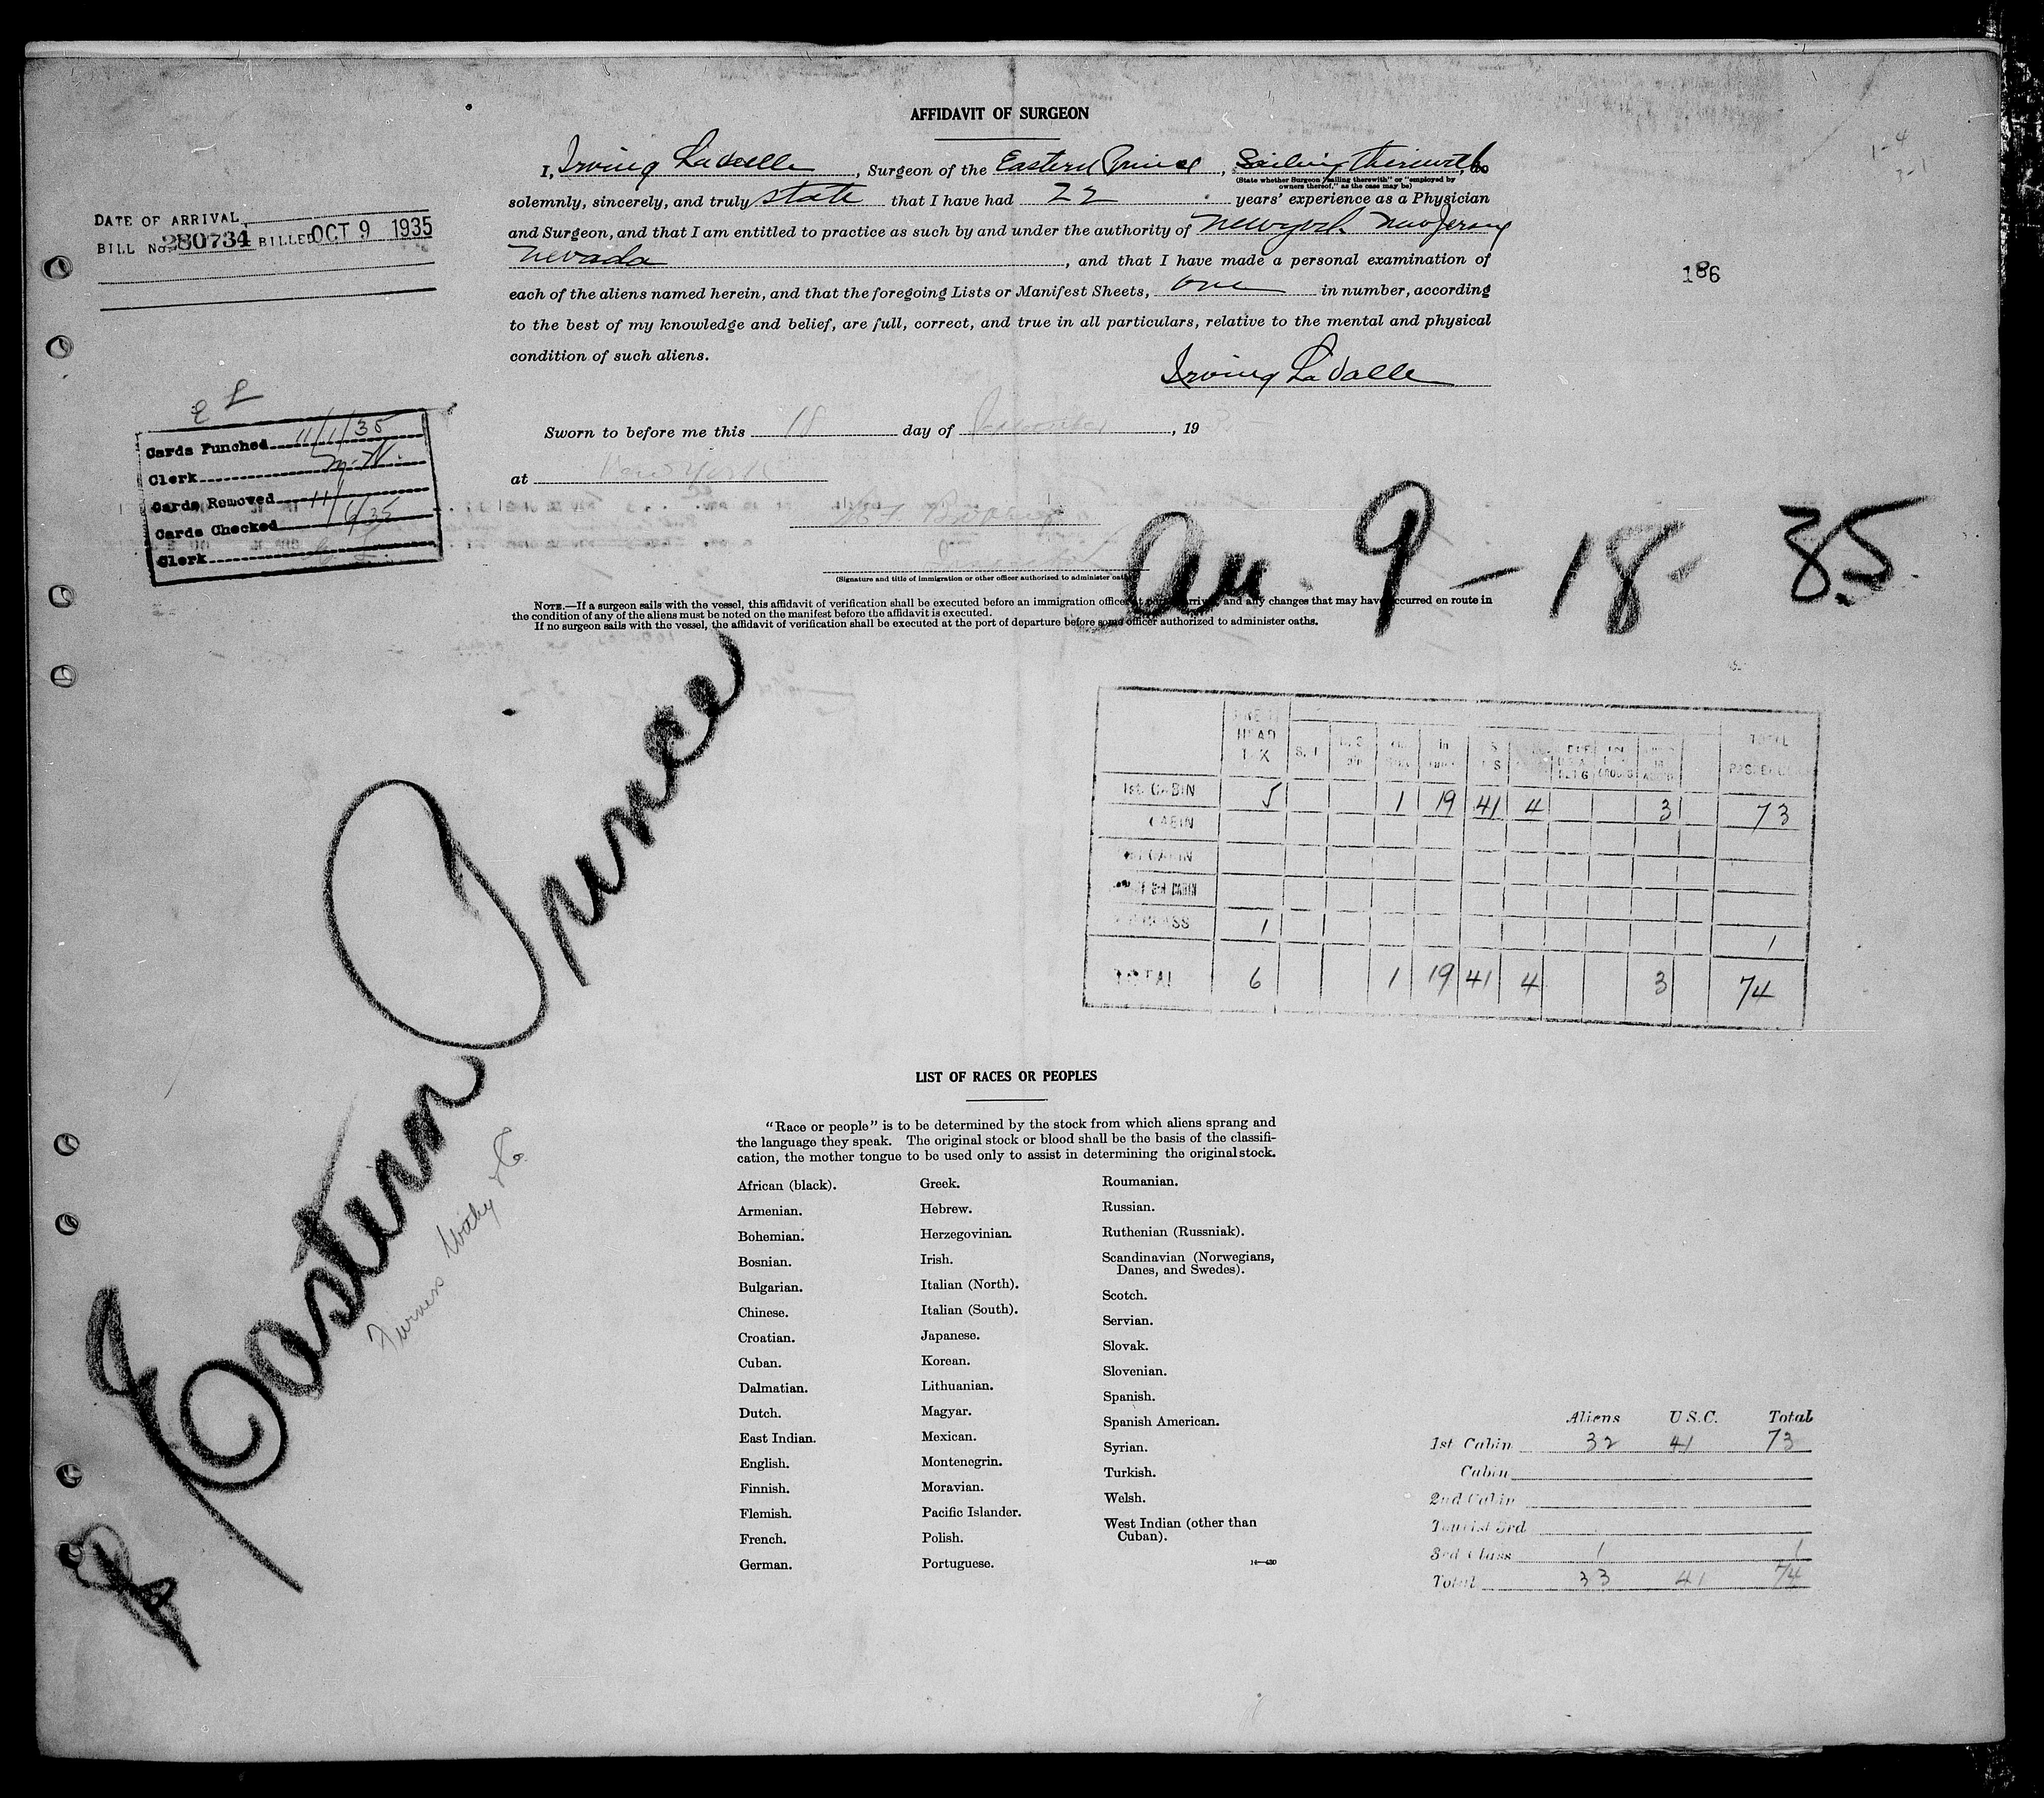 AFFIDAVIT OF SURGEON
I, Irving LaValle, Surgeon of the Eastern Prince, Sailing therewith, do
(State whether Surgeon "sailing therewith" or "employed by
owners thereof," as the case may be)
solemnly, sincerely, and truly state that I have had 22 years' experience as a Physician
and Surgeon, and that I am entitled to practice as such by and under the authority of New York New Jersey
Nevada, and that I have made a personal examination of
each of the aliens named herein, and that the foregoing Lists or Manifest Sheets, one in number, according
to the best of my knowledge and belief, are full, correct, and true in all particulars, relative to the mental and physical
condition of such aliens.
Irving LaValle
Sworn to before me this 18 day of September, 193
at New York
(Signature and title of immigration or other officer authorized to administer oaths
NOTE.—If a surgeon sails with the vessel, this affidavit of verification shall be executed before an immigration officer at port of arrival, and any changes that may have occurred en route in
the condition of any of the aliens must be noted on the manifest before the affidavit is executed.
If no surgeon sails with the vessel, the affidavit of verification shall be executed at the port of departure before some officer authorized to administer oaths.
DATE OF ARRIVAL
BILL No. 280734 BILLED OCT 9 1935
186
1-4
3-1
Cards Punched 11/1/35
Clerk M.N.
Cards Removed 11/
Cards Checked 6/35
Clerk
Arr. 9-18-35
Eastern Prince
Furness Withy & Co.
HEAD TAX S.I. TOTAL
1st CABIN 5 1 19 41 4 3 73
CABIN
CABIN
CLASS 1 1
TOTAL 6 1 19 41 4 3 74
LIST OF RACES OR PEOPLES
"Race or people" is to be determined by the stock from which aliens sprang and
the language they speak. The original stock or blood shall be the basis of the classifi-
cation, the mother tongue to be used only to assist in determining the original stock.
African (black).
Armenian.
Bohemian.
Bosnian.
Bulgarian.
Chinese.
Croatian.
Cuban.
Dalmatian.
Dutch.
East Indian.
English.
Finnish.
Flemish.
French.
German.
Greek.
Hebrew.
Herzegovinian.
Irish.
Italian (North).
Italian (South).
Japanese.
Korean.
Lithuanian.
Magyar.
Mexican.
Montenegrin.
Moravian.
Pacific Islander.
Polish.
Portuguese.
Roumanian.
Russian.
Ruthenian (Russniak).
Scandinavian (Norwegians,
Danes, and Swedes).
Scotch.
Servian.
Slovak.
Slovenian.
Spanish.
Spanish American.
Syrian.
Turkish.
Welsh.
West Indian (other than
Cuban).
14—430
Aliens U.S.C. Total
1st Cabin 32 41 73
Cabin
2nd Cabin
Tourist 3rd
3rd Class 1 1
Total 33 41 74